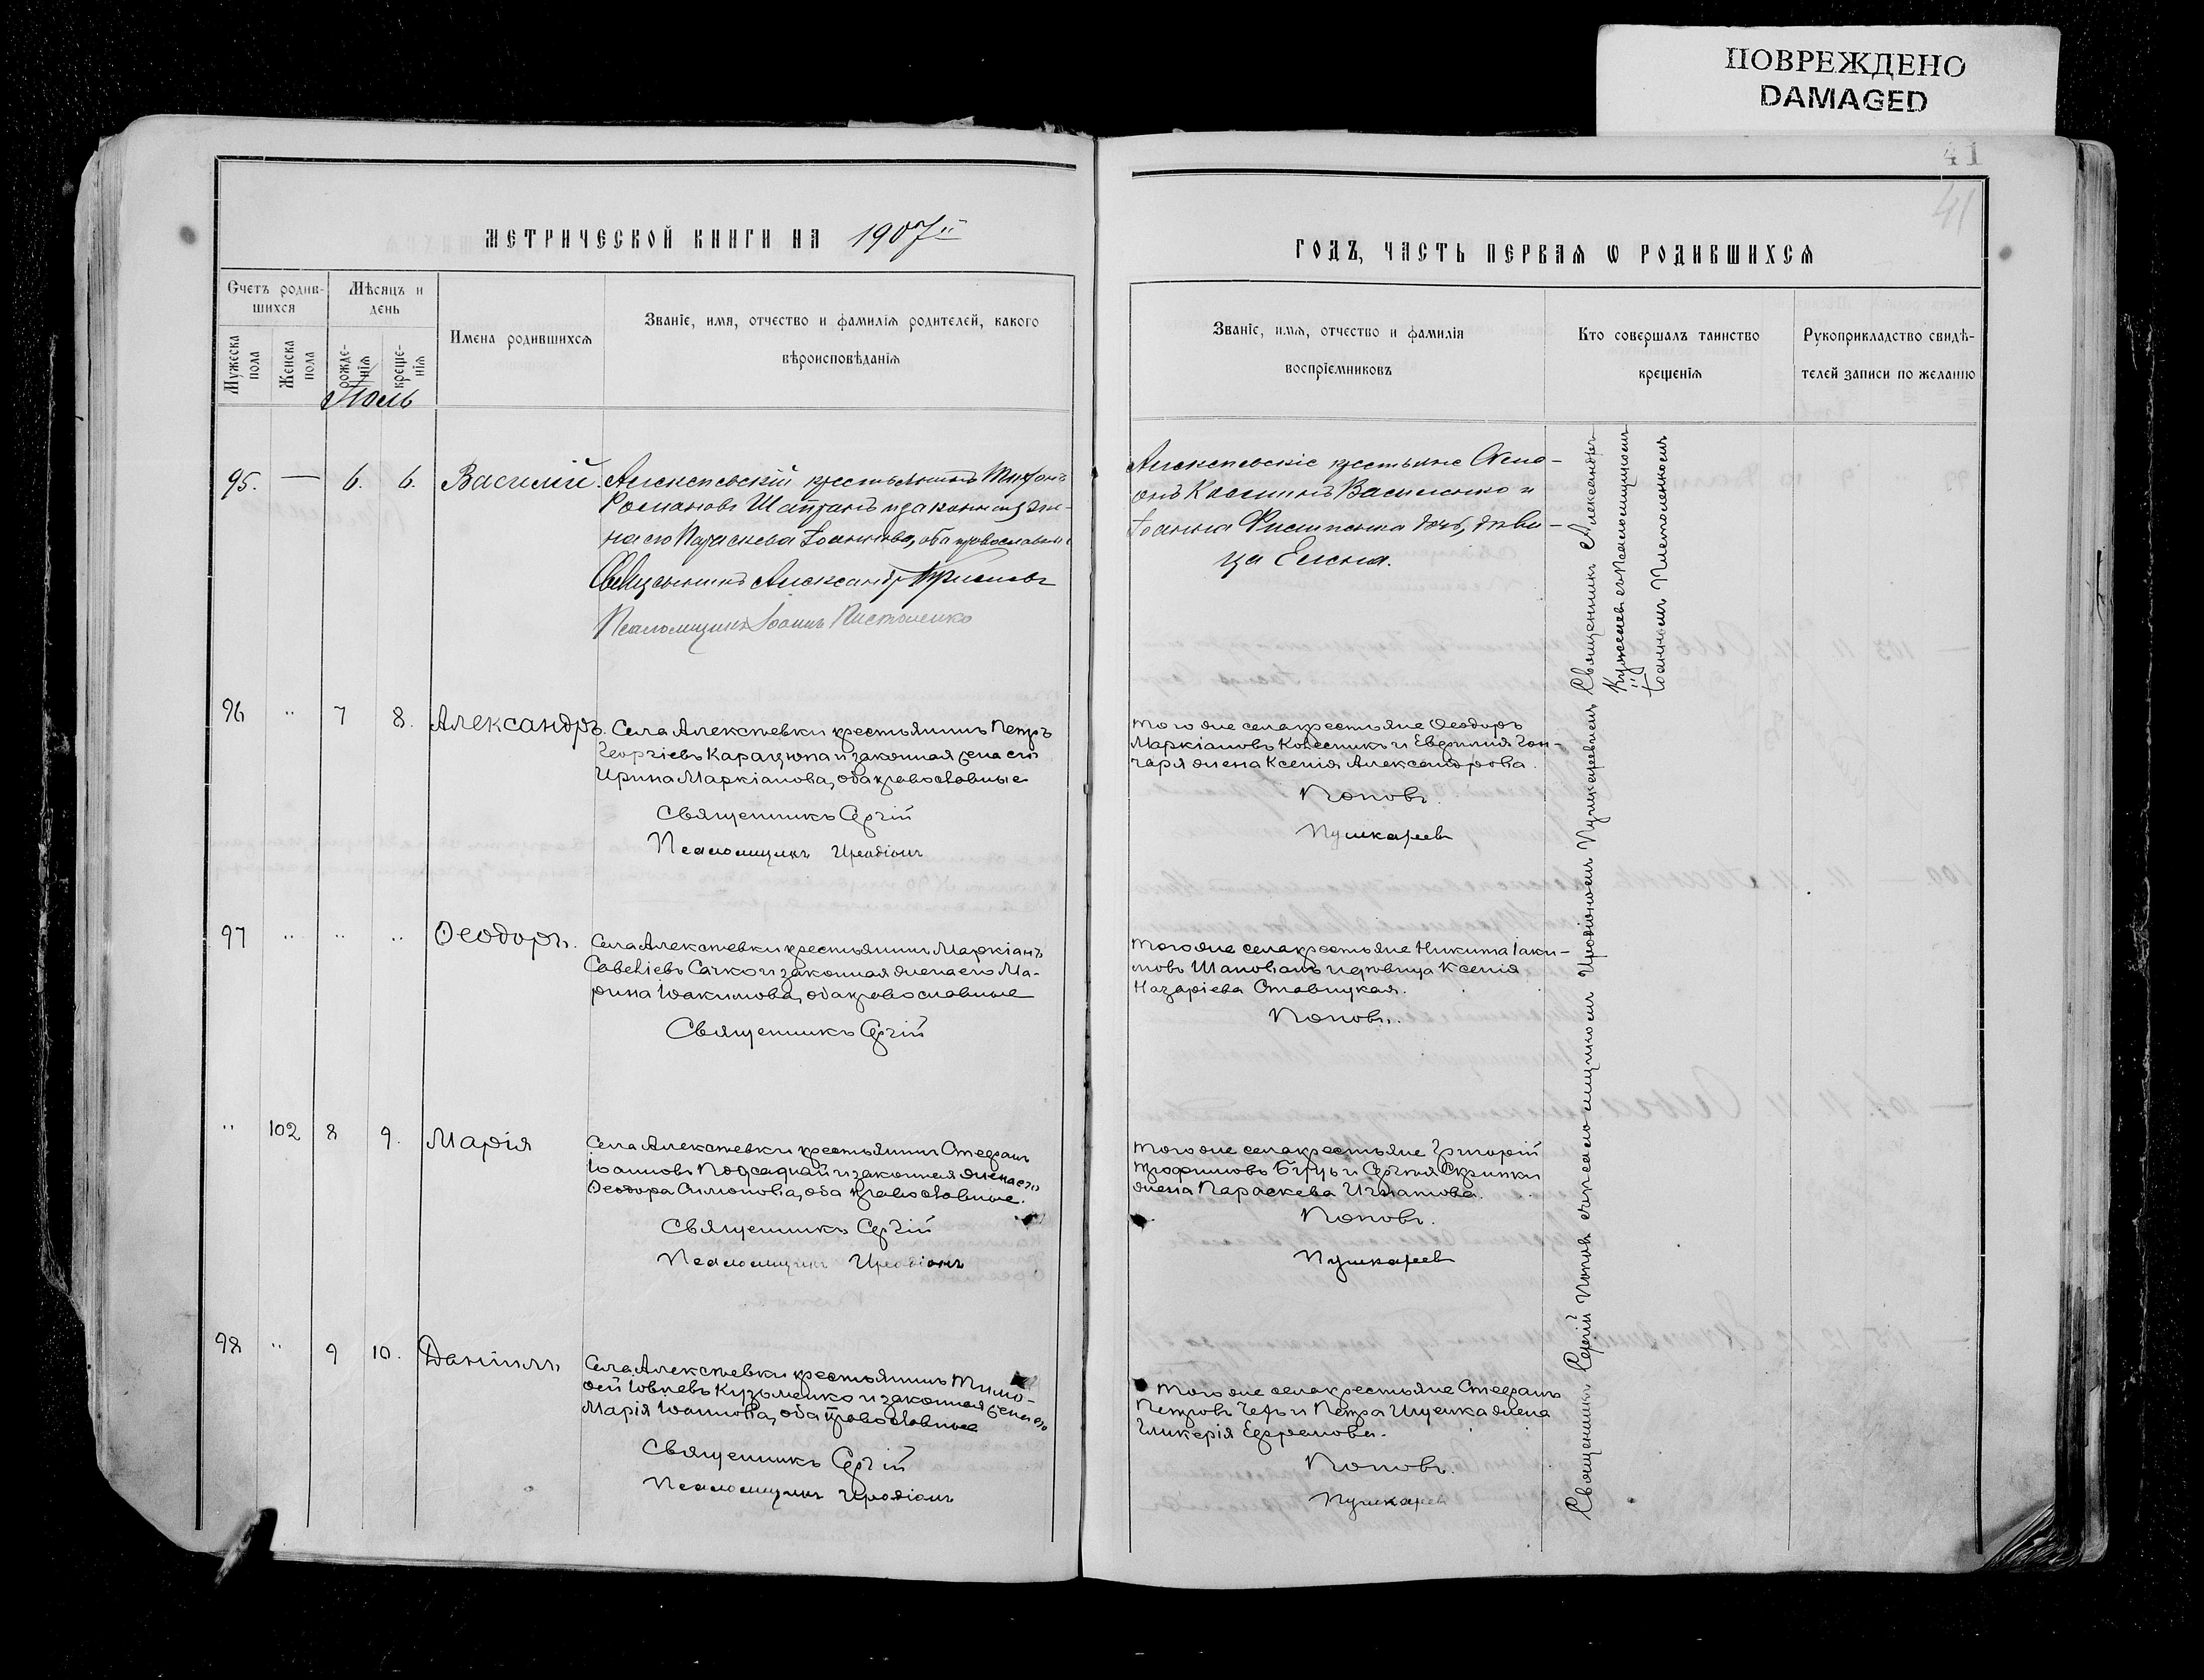 ПОВРЕЖДЕНО
DAMAGED
41
41
МЕТРИЧЕСКОЙ КНИГИ НА 1907й
Счетъ родив-
шихся
Мѣсяцъ и
день
Имена родившихся
Званіе, имя, отчество и фамилія родителей, какого
вѣроисповѣданія
Мужеска
пола
Женска
пола
рожде-
нія
креще-
нія
Іюль
95. — 6. 6. Василій.
Алексѣевскій крестьянинъ Тихонъ
Романовъ Шапранъ и законная же-
на его Параскева Іоаннова, оба православные
Священникъ Александръ
Псаломщикъ Іоаннъ Пистоленко
96 " 7 8. Александръ.
Села Алексѣевки крестьянинъ Петръ
Георгіевъ Карацюпа и законная жена его
Ирина Маркіанова, оба православные
Священникъ Сергій
Псаломщикъ Иродіонъ
97 " " " Ѳеодоръ.
Села Алексѣевки крестьянинъ Маркіанъ
Савеліевъ Сачко и законная жена его Ма-
рина Іоакимова, оба православные
Священникъ Сергій
" 102 8 9. Марія
Села Алексѣевки крестьянинъ Стефанъ
Іоанновъ Подсадній и законная жена его
Ѳеодора Симонова, оба православные.
Священникъ Сергій
Псаломщикъ Иродіонъ
98 " 9 10. Даніилъ
Села Алексѣевки крестьянинъ Тимо-
ѳей Іовлевъ Кузьменко и законная жена его
Марія Іоаннова, оба православные
Священникъ Сергій
Псаломщикъ Иродіонъ
ГОДЪ, ЧАСТЬ ПЕРВАЯ Ѡ РОДИВШИХСЯ
Званіе, имя, отчество и фамилія
воспріемниковъ
Кто совершалъ таинство
крещенія
Рукоприкладство свидѣ-
телей записи по желанію
Алексѣевскіе крестьяне
Косминъ Василенко и
Іоанна Филипенка дочь, дѣви-
ца Елена.
Того же села крестьяне Ѳеодоръ
Маркіановъ Колесникъ и Евфимія Гон-
чаря жена Ксенія Александрова.
Поповъ.
Пушкаревъ
Того же села крестьяне Никита Іаки-
мовъ Шаповалъ и вдовица Ксенія
Назаріева Ставицкая.
Поповъ.
Того же села крестьяне Григорій
Трофимовъ и Сергія Скрипки
жена Параскева Игнатова.
Поповъ.
Пушкаревъ
Того же села крестьяне Стефанъ
Петровъ и Петра Ищенка жена
Гликерія Ефремова.
Поповъ.
Пушкаревъ
Священникъ Александръ
съ Псаломщикомъ
Іоанномъ Пистоленкомъ
Священникъ Сергій Поповъ съ псаломщикомъ Иродіономъ Пушкаревымъ